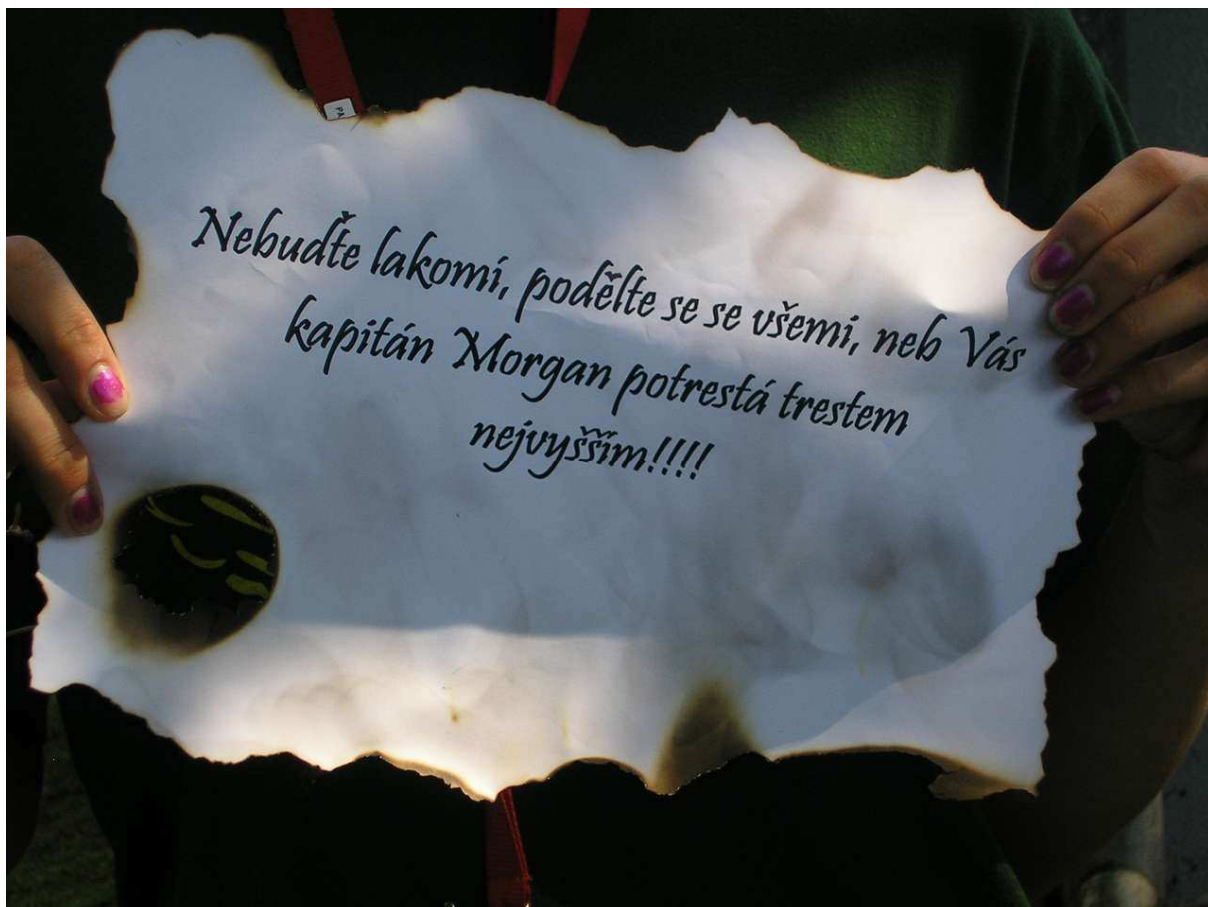 Nebuďte lakomí, podělte se se všemi, neb Vás
kapitán Morgan potrestá trestem
nejvyšším!!!!
PA